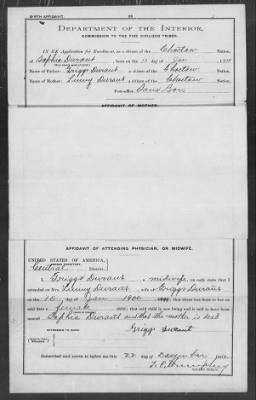 BIRTH AFFIDAVIT.
DEPARTMENT OF THE INTERIOR,
COMMISSION TO THE FIVE CIVILIZED TRIBES.
IN RE Application for Enrollment, as a citizen of the Choctaw Nation,
of Sophia Durant, born on the 10 day of Jan
Name of Father: Griggs Durant a citizen of the Choctaw Nation.
Name of Mother: Linny Durant a citizen of the Choctaw Nation.
Post-office,
AFFIDAVIT OF MOTHER.
AFFIDAVIT OF ATTENDING PHYSICIAN, OR MIDWIFE.
UNITED STATES OF AMERICA,
INDIAN TERRITORY,
Central District.
I, Griggs Durant, a midwife, on oath state that I
attended on Mrs. Linny Durant, wife of Griggs Durant
on the 10 day of Jan 1900
female child; that said child is now living and is said to have been
named Sophia Durant and that the mother is dead
Griggs Durant
WITNESSES TO MARK:
Subscribed and sworn to before me this 22 day of